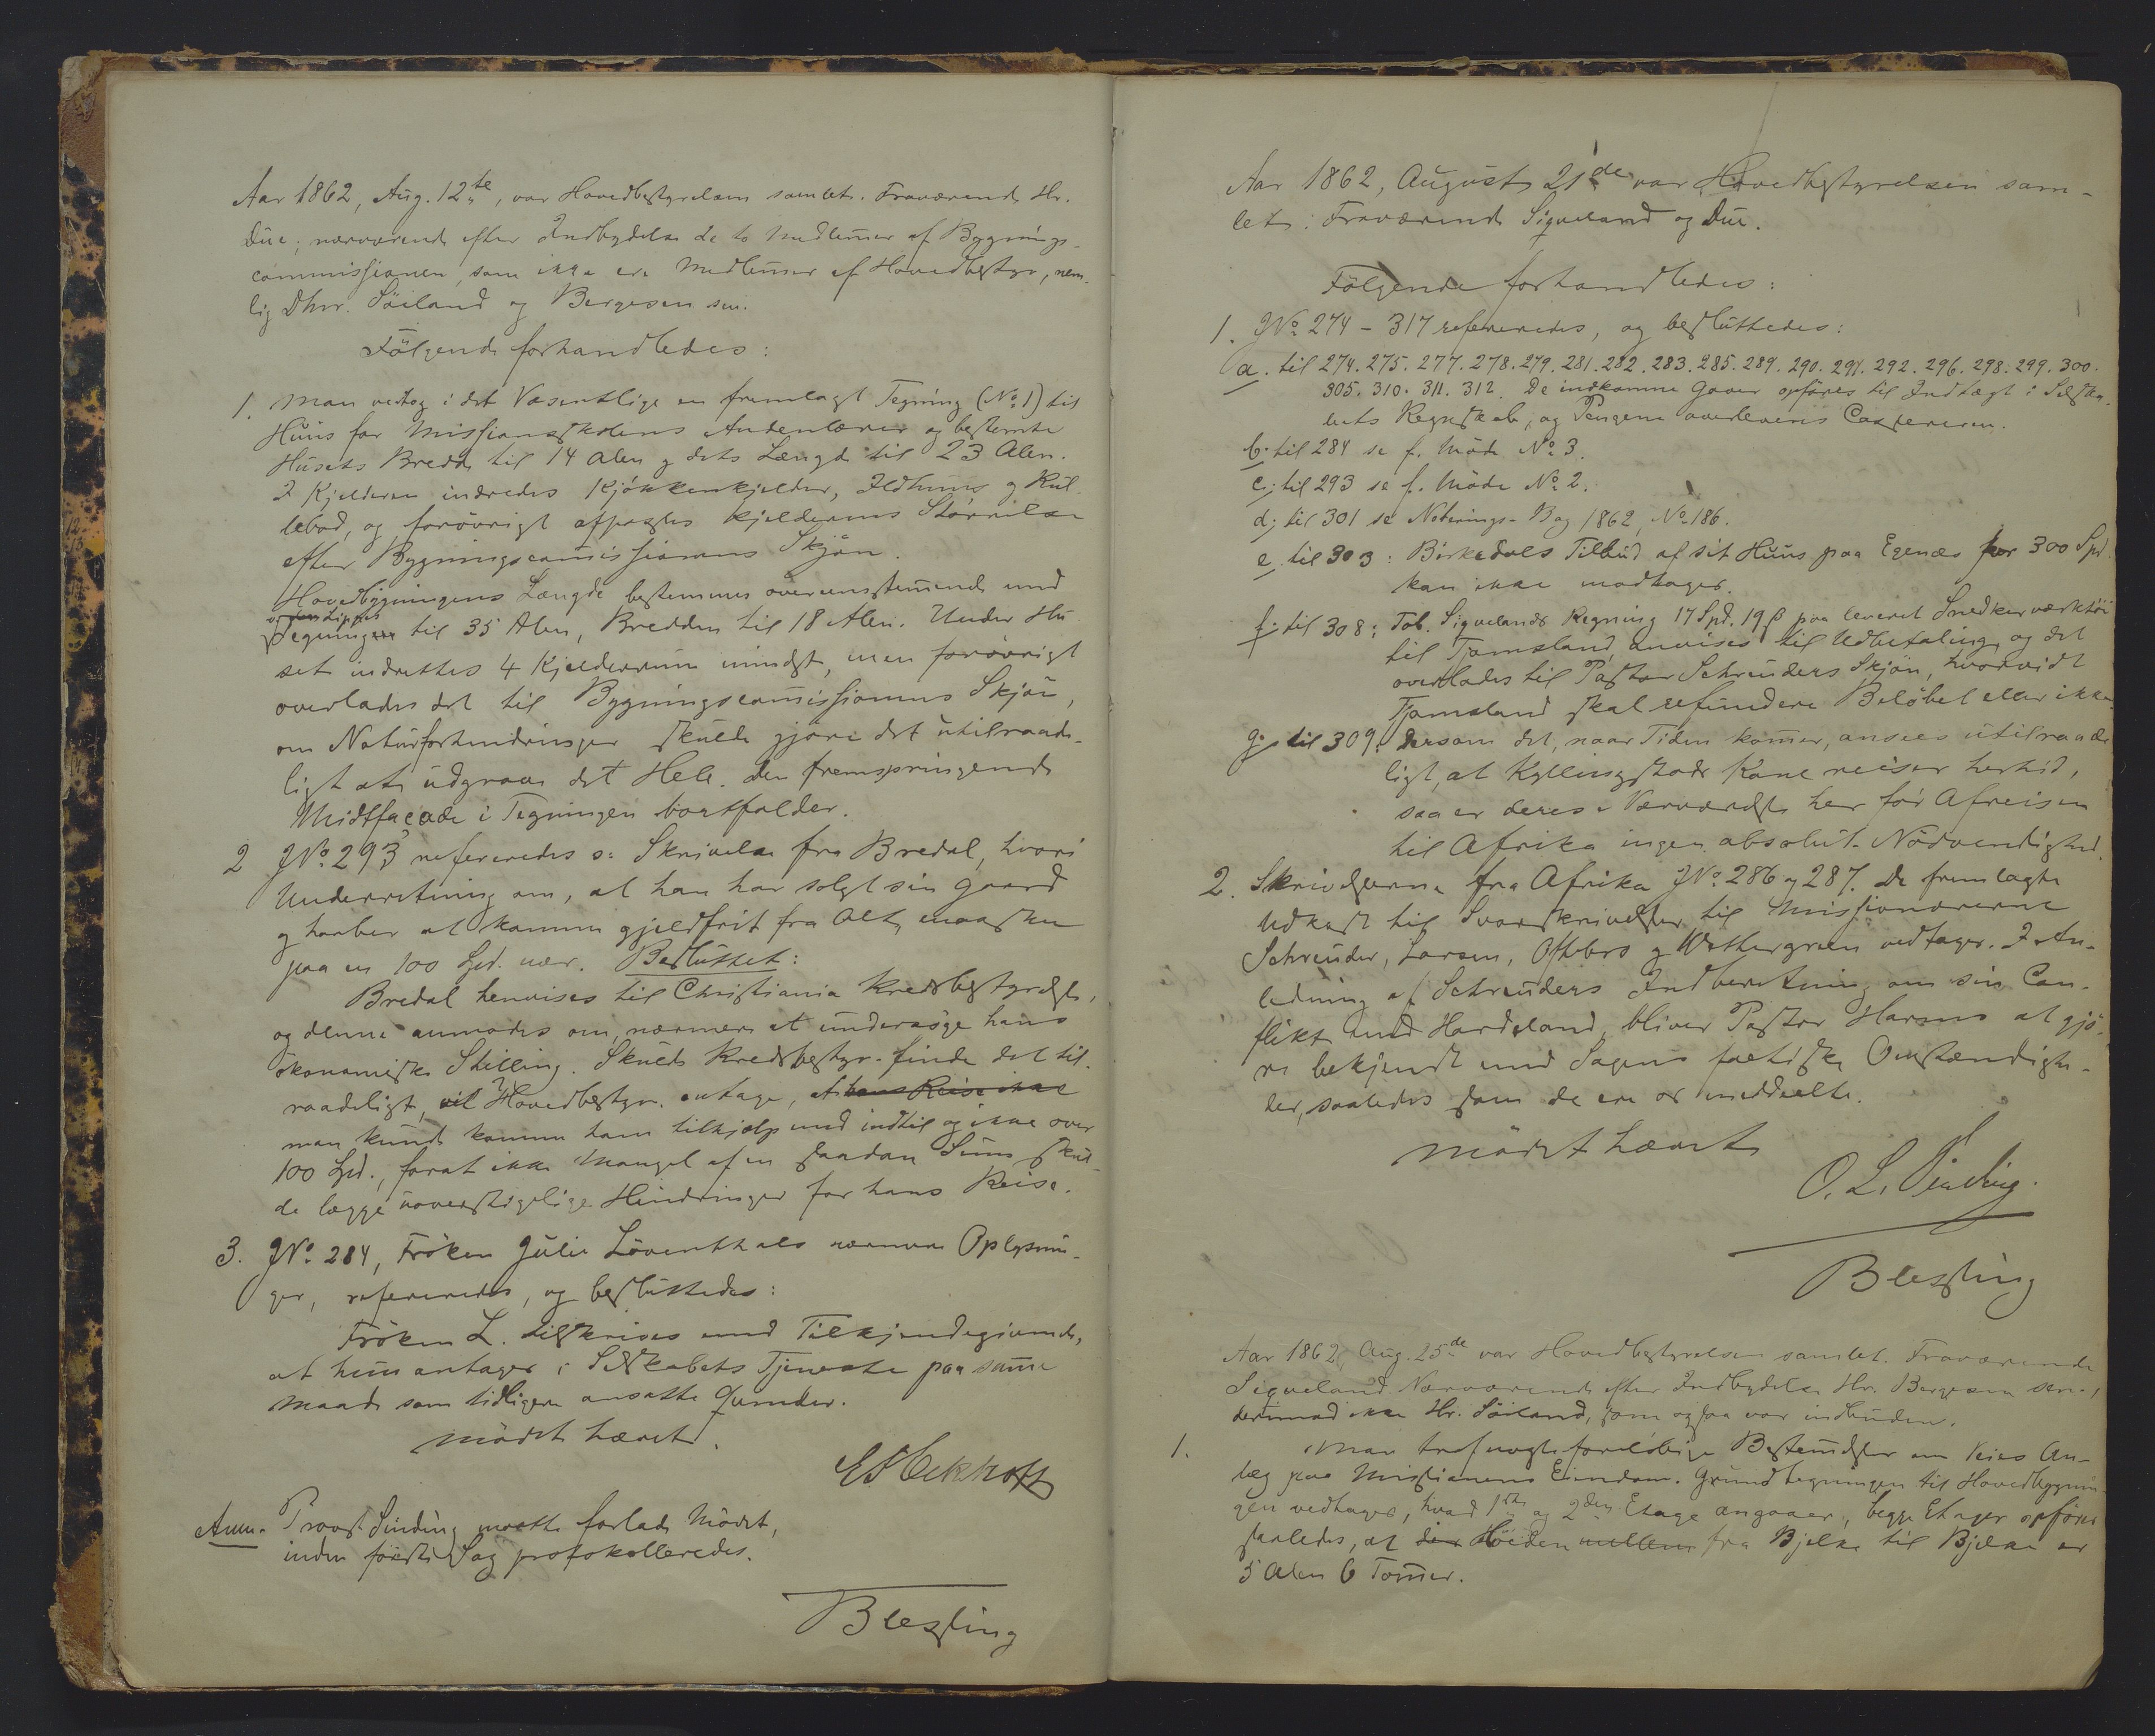 Aar 1862, Aug. 12te, var Hovedbestyrelsen samlet. Fraværende Hr.
Due; nærværende efter Indbydelse de to Medlemer af Bygnings-
commissionen, som ikke ere Medlemer af Hovedbestyr, nem-
lig Dhrr. Söiland og Bergesen sen.
Fölgende forhandledes:
1. Man vedtog i det Væsentlige en fremlagt Tegning (No 1) til
Huus for Missionsskolens Andenlærer og bestemte
Husets Bredde til 14 Alen og dets Længde til 23 Alen.
I Kjelderen indredes Kjökkenkjelder, Ildhuus og Rul-
lebod, og forövrigt afpasses Kjelderens Störrelse
efter Bygningscomissionens Skjön.
Hovedbygningens Længde bestemmes overensstemende med
Tegningen til 35 Alen, Bredden til 18 Alen. Under Hu-
set indrettes 4 Kjelderrum mindst, men forövrigt
overlades det til Bygningscomissionens Skjön,
om Naturforhindringer skulde gjöre det utilraade-
ligt at udgrave det Hele. Den fremspringende
Midtfacade i Tegningen bortfalder.
2 JNo 293 refereredes o: Skrivelse fra Bredal, hvori
Underretning om, at han har solgt sin Gaard
og haaber at komme gjeldfrit fra Alt, maaskee
paa en 100 Spd. nær. Besluttet:
Bredal henvises til Christiania Kredsbestyrelse,
og denne anmodes om, nærmere at undersöge hans
ökonomiske Stilling. Skulde Kredsbestyr. finde det til-
raadeligt, vil Hovedbestyr. antage, at hans Reise ikke
man kunde komme ham tilhjælp med indtil og ikke over
100 Spd., forat ikke Mangel af en saadan Sum skul-
de lægge uoverstigelige Hindringer for hans Reise.
3. JNo 284, Fröken Julie Löventhals nærmere Oplysnin-
ger, refereredes, og besluttedes:
Fröken L. tilskrives med Tilkjendegivende,
at hun antages i Selskabets Tjeneste paa samme
Maade som tidligere ansatte Qvinder.
Mödet hævet.
E S Eckhoff
Anm. Provst Sinding maatte forlade Mödet,
inden förste Sag protokolleredes.
Blessing
Aar 1862, August 21de var Hovedbestyrelsen sam-
let: Fraværende Siqveland og Due.
Fölgende forhandledes:
1. JNo 274 - 317 refereredes, og besluttedes:
a. til 274. 275. 277. 278. 279. 281. 282. 283. 285. 289. 290. 291. 292. 296. 298. 299. 300.
305. 310. 311. 312. De indkomne Gaver opföres til Indtægt i Selska-
bets Regnskab, og Pengene overleveres Cassereren.
b. til 284 se f. Möde No 3.
c; til 293 se f. Möde No 2.
d; til 301 se Noterings-Bog 1862, No 186.
e. til 303: Birkedals Tilbud af sit Huus paa Egenæs for 300 Spd.
kan ikke modtages.
f. til 308: Tob. Siqvelands Regning 17 Spd. 19 ß paa leveret Snedkerværktöi
til Tjomsland, anvises til Udbetaling, og det
overlades til Pastor Schreuders Skjön, hvorvidt
Tjomsland skal refundere Belöbet eller ikke.
g. til 309. Dersom det, naar Tiden kommer, ansees utilraade-
ligt, at Kyllingstads Kone reiser herhid,
saa er deres Nærværelse her för Afreisen
til Afrika ingen absolut Nödvendighed.
2. Skrivelserne fra Afrika JNo 286 og 287. De fremlagte
Udkast til Svarskrivelser til Missionærerne
Schreuder, Larsen, Oftebro og Wettergreen vedtages. I An-
ledning af Schreuders Indberetning om sin Con-
flikt med Hardeland, bliver Pastor Harms at gjö-
re bekjendt med Sagens factiske Omstændighe-
der, saaledes som de ere os meddeelte.
Mödet hævet
O. L. Sinding.
Blessing
Aar 1862, Aug. 25de var Hovedbestyrelsen samlet. Fraværende
Siqveland. Nærværende efter Indbydelse Hr. Bergesen sen.,
derimod ikke Hr. Söiland, som ogsaa var indbuden.
1. Man traf nogle foreløbige Bestemelser om Veies An-
læg paa Missionens Eiendom. Grundtegningen til Hovedbygnin-
gen vedtages, hvad 1ste og 2den Etage angaaer, begge Etager opföres
saaledes, at den Höiden mellem fra Bjelke til Bjelke er
5 Alen 6 Tommer.